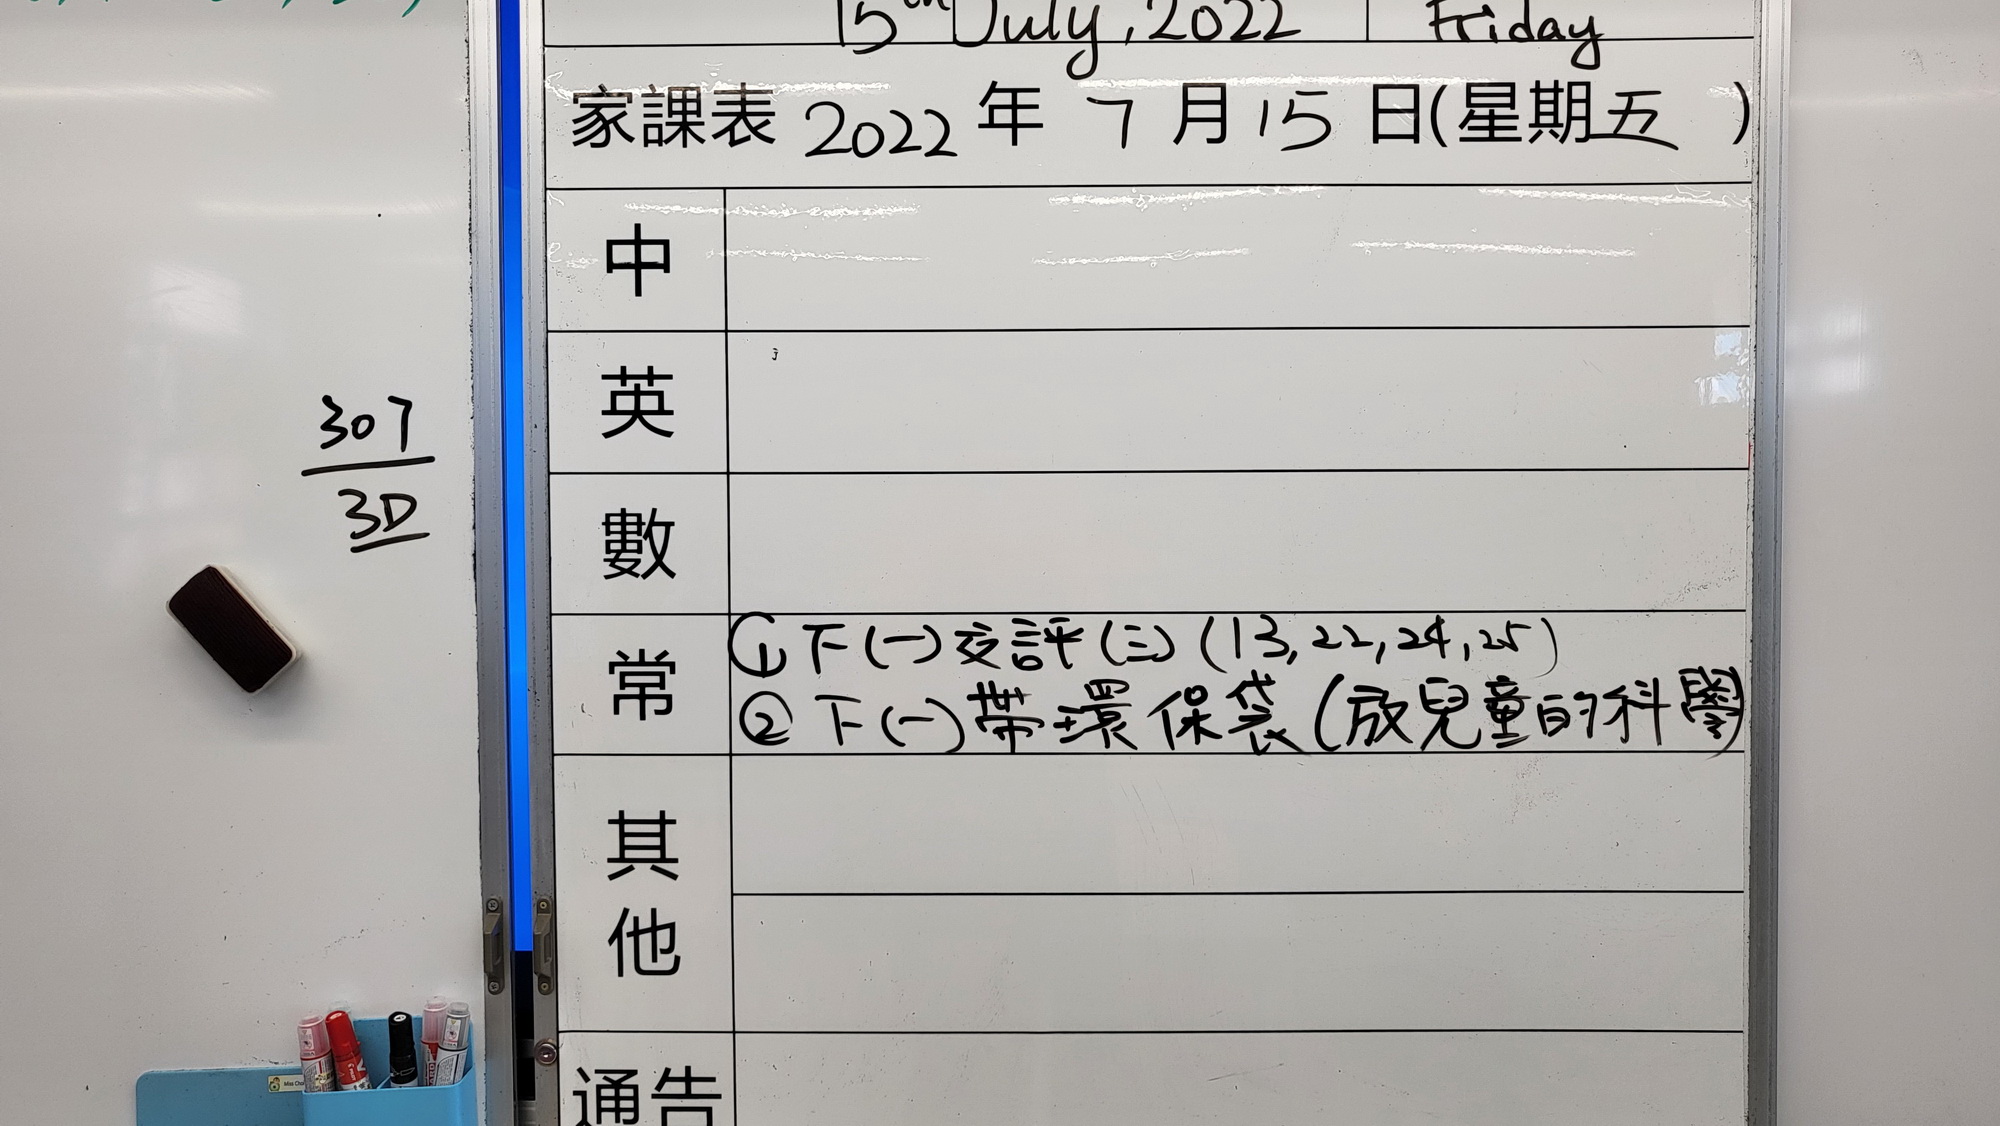 15th July, 2022 Friday
家課表 2022 年 7 月 15 日(星期五 )
中
英
307
3D
數
常 ① 下(一)交評(三)(13,22,24,25)
② 下(一)帶環保袋(放兒童的科學)
其他
通告